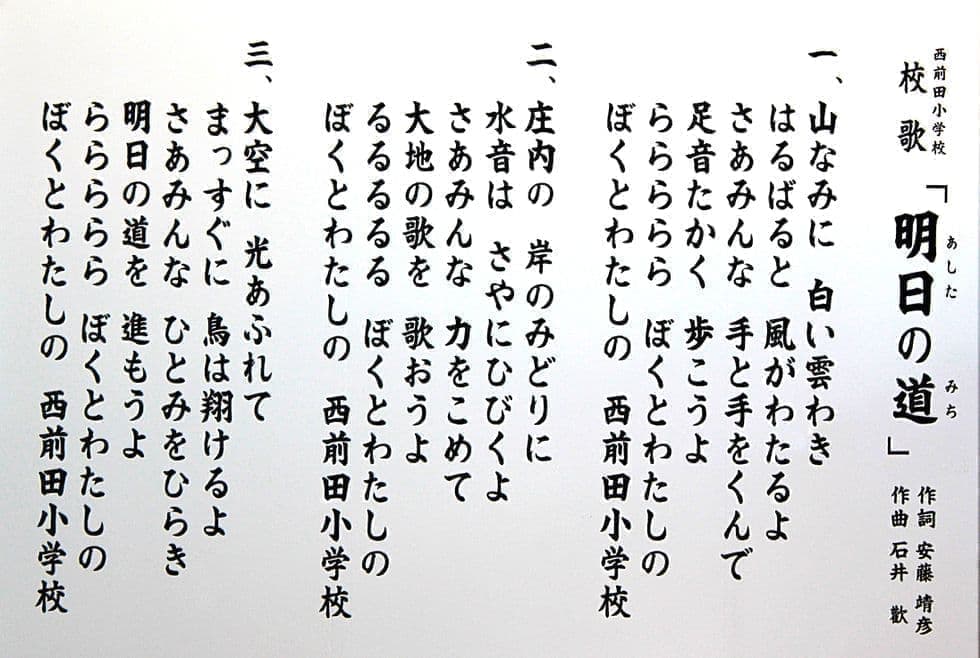 西前田小学校
校歌
「明日の道」
あした みち
作詞 安藤 靖彦
作曲 石井 歡
一、山なみに 白い雲わき
はるばると 風がわたるよ
さあみんな 手と手をくんで
足音たかく 歩こうよ
ららららら ぼくとわたしの
ぼくとわたしの 西前田小学校
二、庄内の 岸のみどりに
水音は さやにひびくよ
さあみんな 力をこめて
大地の歌を 歌おうよ
るるるるる ぼくとわたしの
ぼくとわたしの 西前田小学校
三、大空に 光あふれて
まっすぐに 鳥は翔けるよ
さあみんな ひとみをひらき
明日の道を 進もうよ
ららららら ぼくとわたしの
ぼくとわたしの 西前田小学校